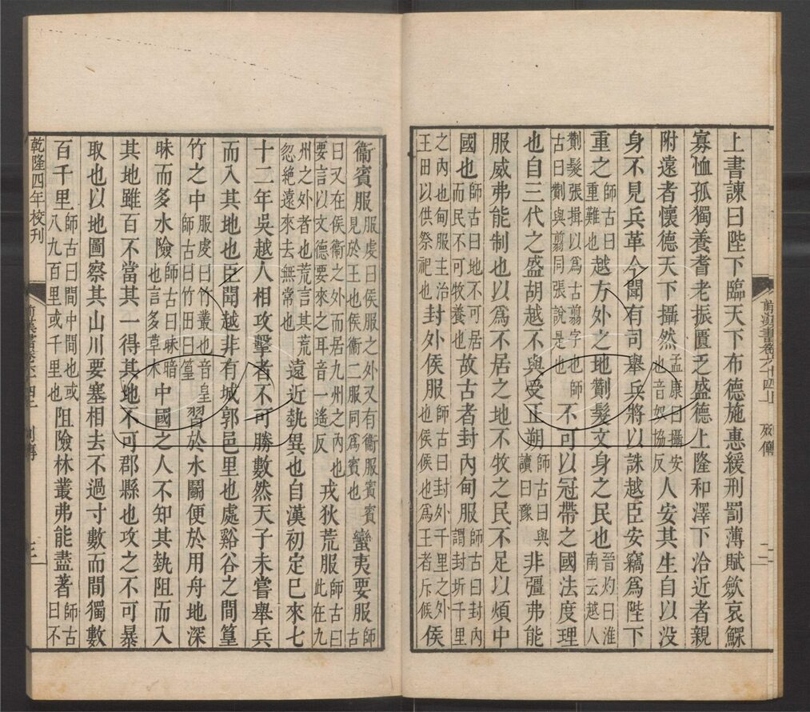 上書諫曰陛下臨天下布德施惠緩刑罰薄賦斂哀鰥
寡恤孤獨養耆老振匱乏盛德上隆和澤下洽近者親
附遠者懷德天下攝然孟康曰攝安也音奴協反人安其生自以沒
身不見兵革今聞有司舉兵將以誅越臣安竊爲陛下
重之師古曰重難也越方外之地劗髮文身之民也晉灼曰淮南云越人
劗髮張揖以爲古翦字也師古曰劗與翦同張說是也不可以冠帶之國法度理
也自三代之盛胡越不與受正朔師古曰與讀曰豫非彊弗能
服威弗能制也以爲不居之地不牧之民不足以煩中
國也師古曰地不可居而民不可牧養也故古者封內甸服師古曰封內謂封圻千里
之內也甸服主治王田以供祭祀也封外侯服師古曰封外千里之外也侯候也爲王者斥候侯
衞賓服服虔曰侯服之外又有衞服賓賓見於王也侯衞二服同爲賓也蠻夷要服師古
曰又在侯衞之外而居九州之內也要言以文德要來之耳音一遙反戎狄荒服師古曰此在九
州之外者也荒言其荒忽絶遠來去無常也遠近埶異也自漢初定已來七
十二年吳越人相攻擊者不可勝數然天子未嘗舉兵
而入其地也臣聞越非有城郭邑里也處谿谷之間篁
竹之中服虔曰竹叢也音皇師古曰竹田曰篁習於水鬭便於用舟地深
昧而多水險師古曰昧暗也言多草木中國之人不知其埶阻而入
其地雖百不當其一得其地不可郡縣也攻之不可暴
取也以地圖察其山川要塞相去不過寸數而間獨數
百千里師古曰間中間也或八九百里或千里也阻險林叢弗能盡著師古曰不
乾隆四年校刊